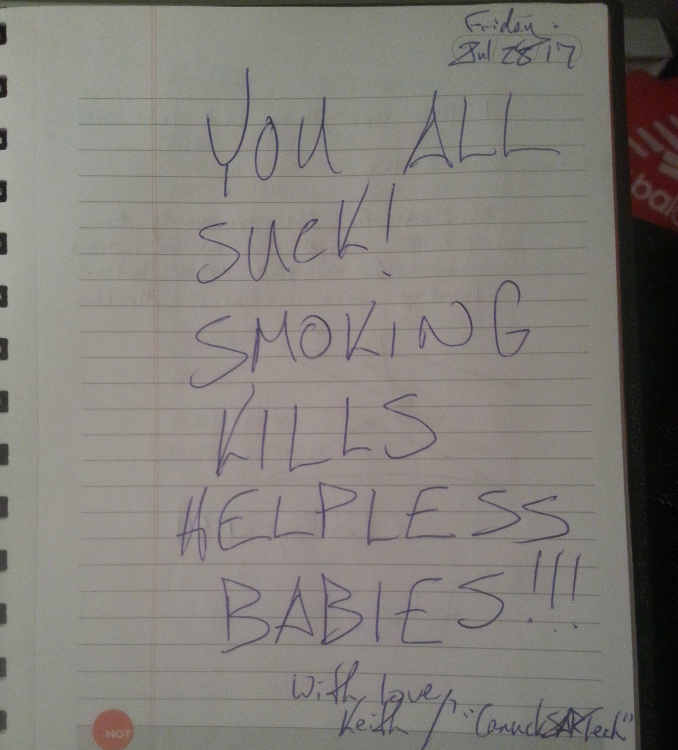 Friday.
Jul 28 17
YOU ALL
SUCK!
SMOKING
KILLS
HELPLESS
BABIES!!!
With love,
Keith / "CanuckSARTech"
HOT